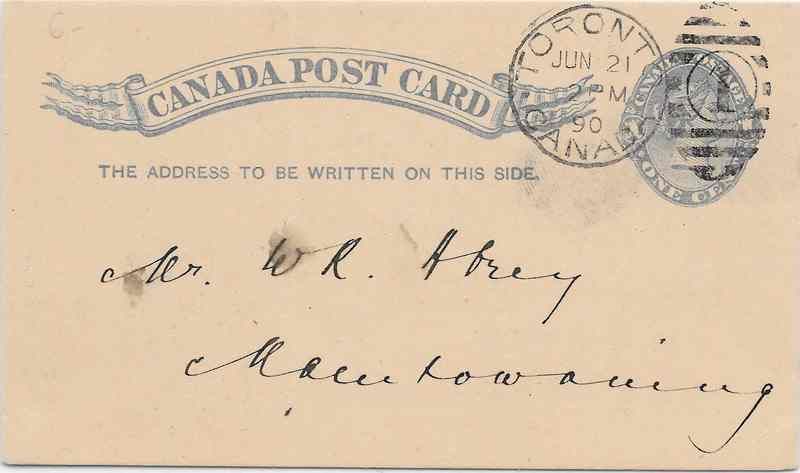 6-
CANADA POST CARD
TORONTO
JUN 21
2 PM
90
CANADA
CANADA POSTAGE
ONE CENT
THE ADDRESS TO BE WRITTEN ON THIS SIDE.
Mr. W R. Abrey
Manitowaning